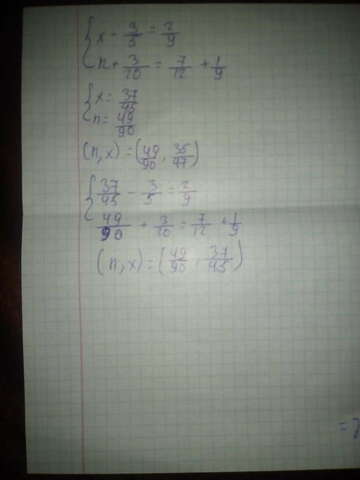 { x - 3/5 = 2/9
n + 3/20 = 7/12 + 1/9
{ x = 37/45
n = 49/90
(n, x) = (49/90, 35/47)
{ 37/45 - 3/5 = 2/9
49/90 + 3/20 = 7/12 + 1/9
(n, x) = (49/90, 37/45)